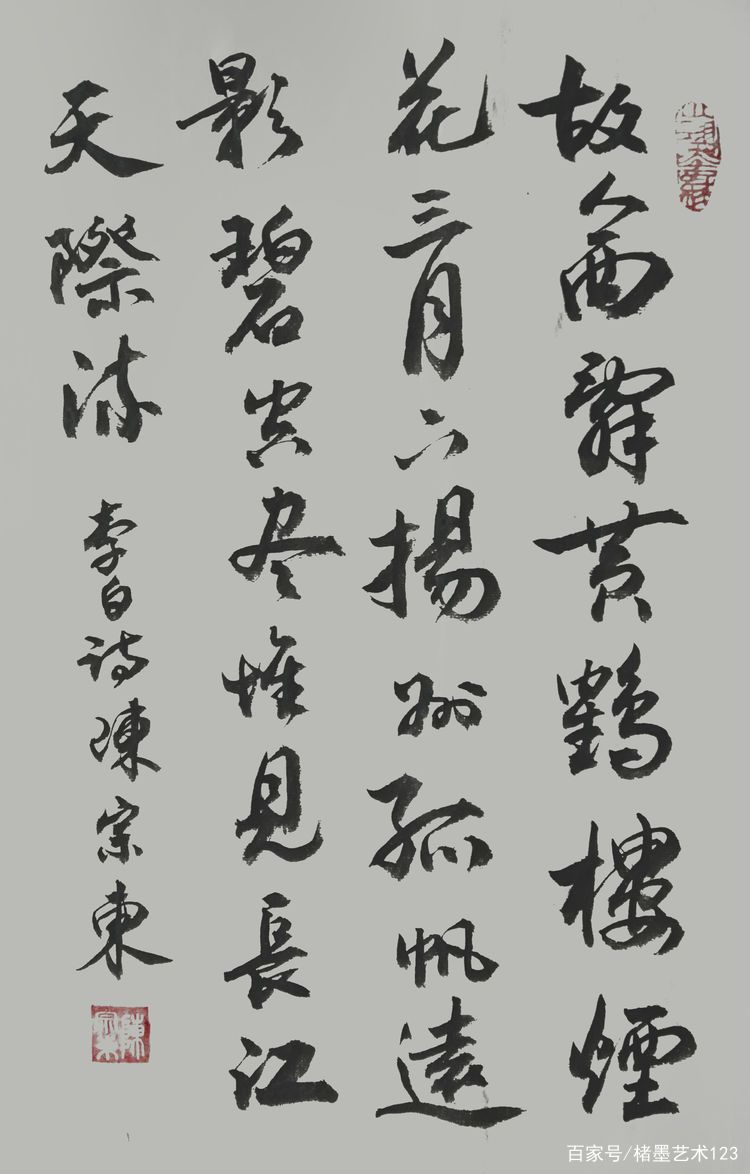 故人西辭黃鶴樓煙
花三月下揚州孤帆遠
影碧空尽惟見長江
天際流
李白詩陳宗東
百家号/楮墨艺术123